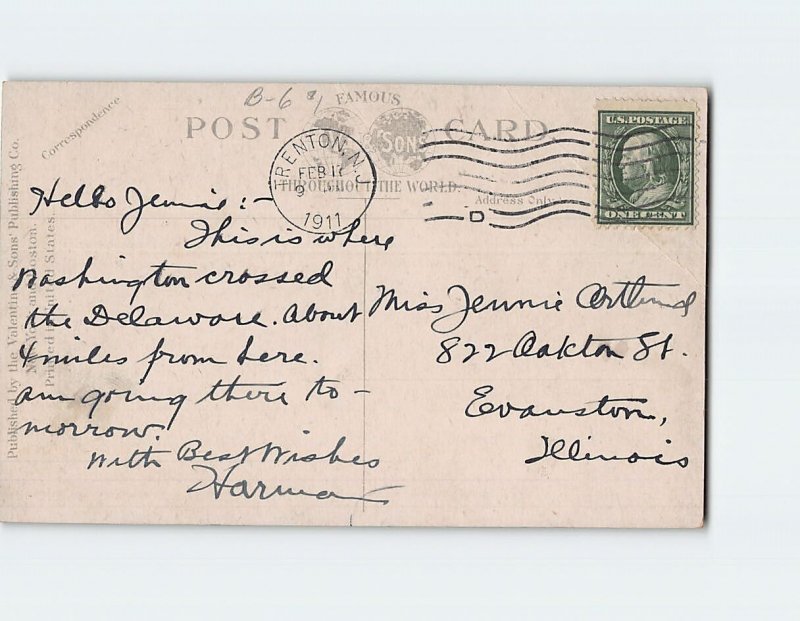 B-6
FAMOUS
POST CARD
SONS
THROUGHOUT THE WORLD.
Correspondence
Address Only
TRENTON, N.J.
FEB
9
1911
U.S. POSTAGE
ONE CENT
Published by the Valentine & Sons' Publishing Co.
New York and Boston.
Printed in United States.
Hello Jennie :-
This is where
Washington crossed
the Delaware. About
4 miles from here.
am going there to-
morrow.
With Best Wishes
Harman
Miss Jennie
822 Oakton St.
Evanston,
Illinois